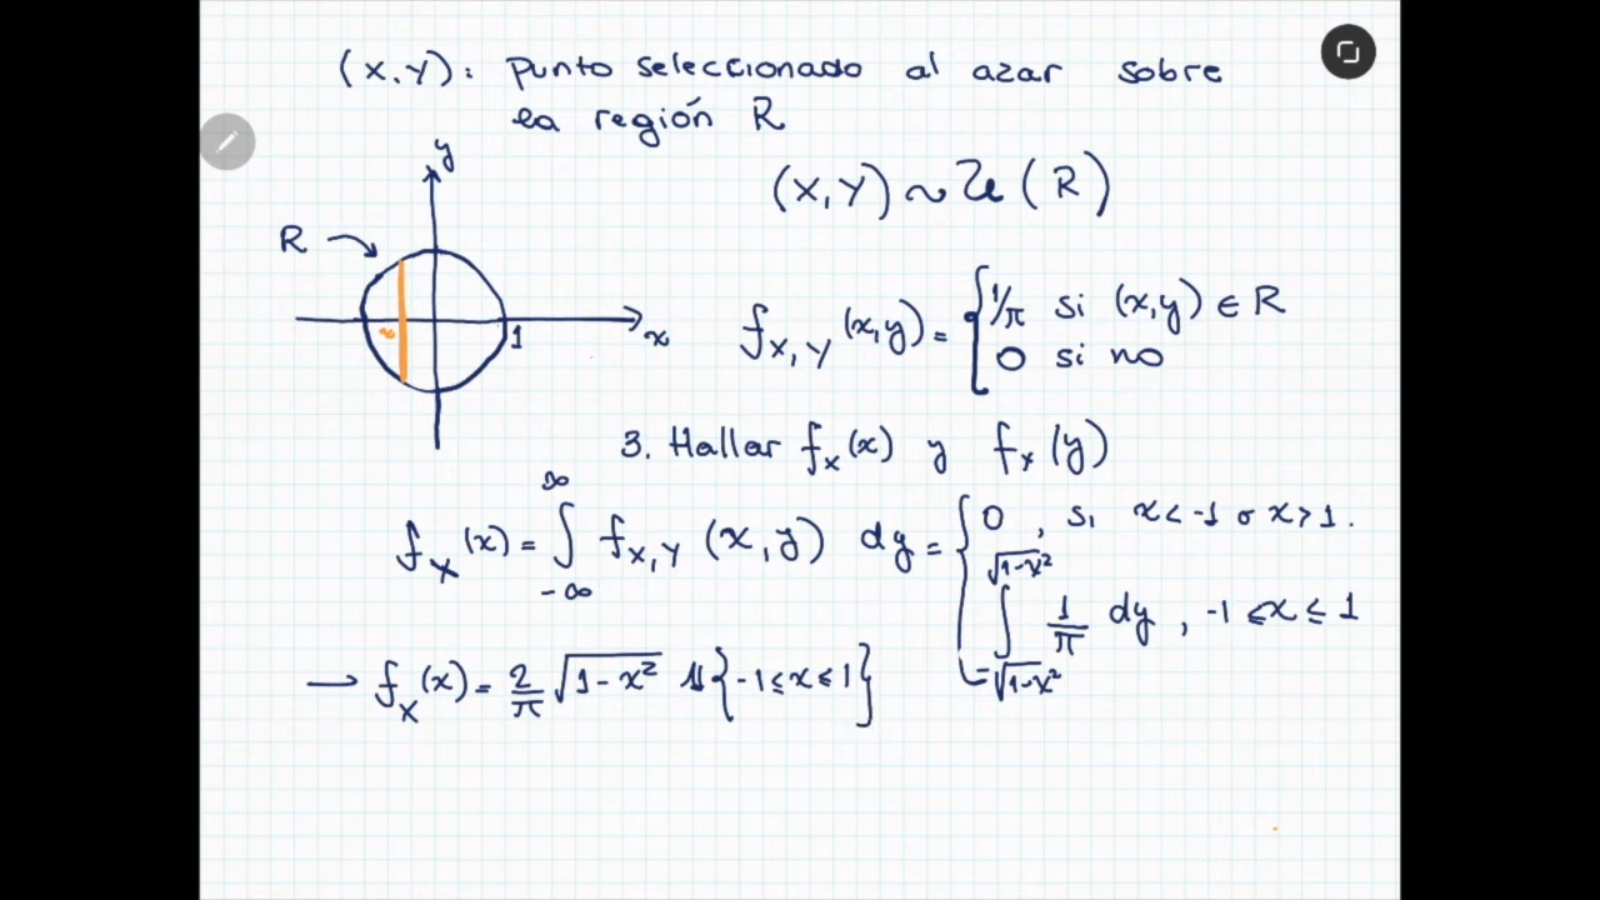 (X,Y): Punto seleccionado al azar sobre
la región R
(X,Y) ~ U(R)
y
R
x
1
x
f_{X,Y}(x,y) = { 1/π si (x,y) ∈ R
0 si no
3. Hallar f_x(x) y f_x(y)
f_X(x) = ∫_{-∞}^{∞} f_{X,Y}(x,y) dy = { 0, si x < -1 o x > 1.
∫_{-√(1-x²)}^{√(1-x²)} 1/π dy, -1 ≤ x ≤ 1
→ f_X(x) = 2/π √(1-x²) 𝟙{-1 ≤ x ≤ 1}